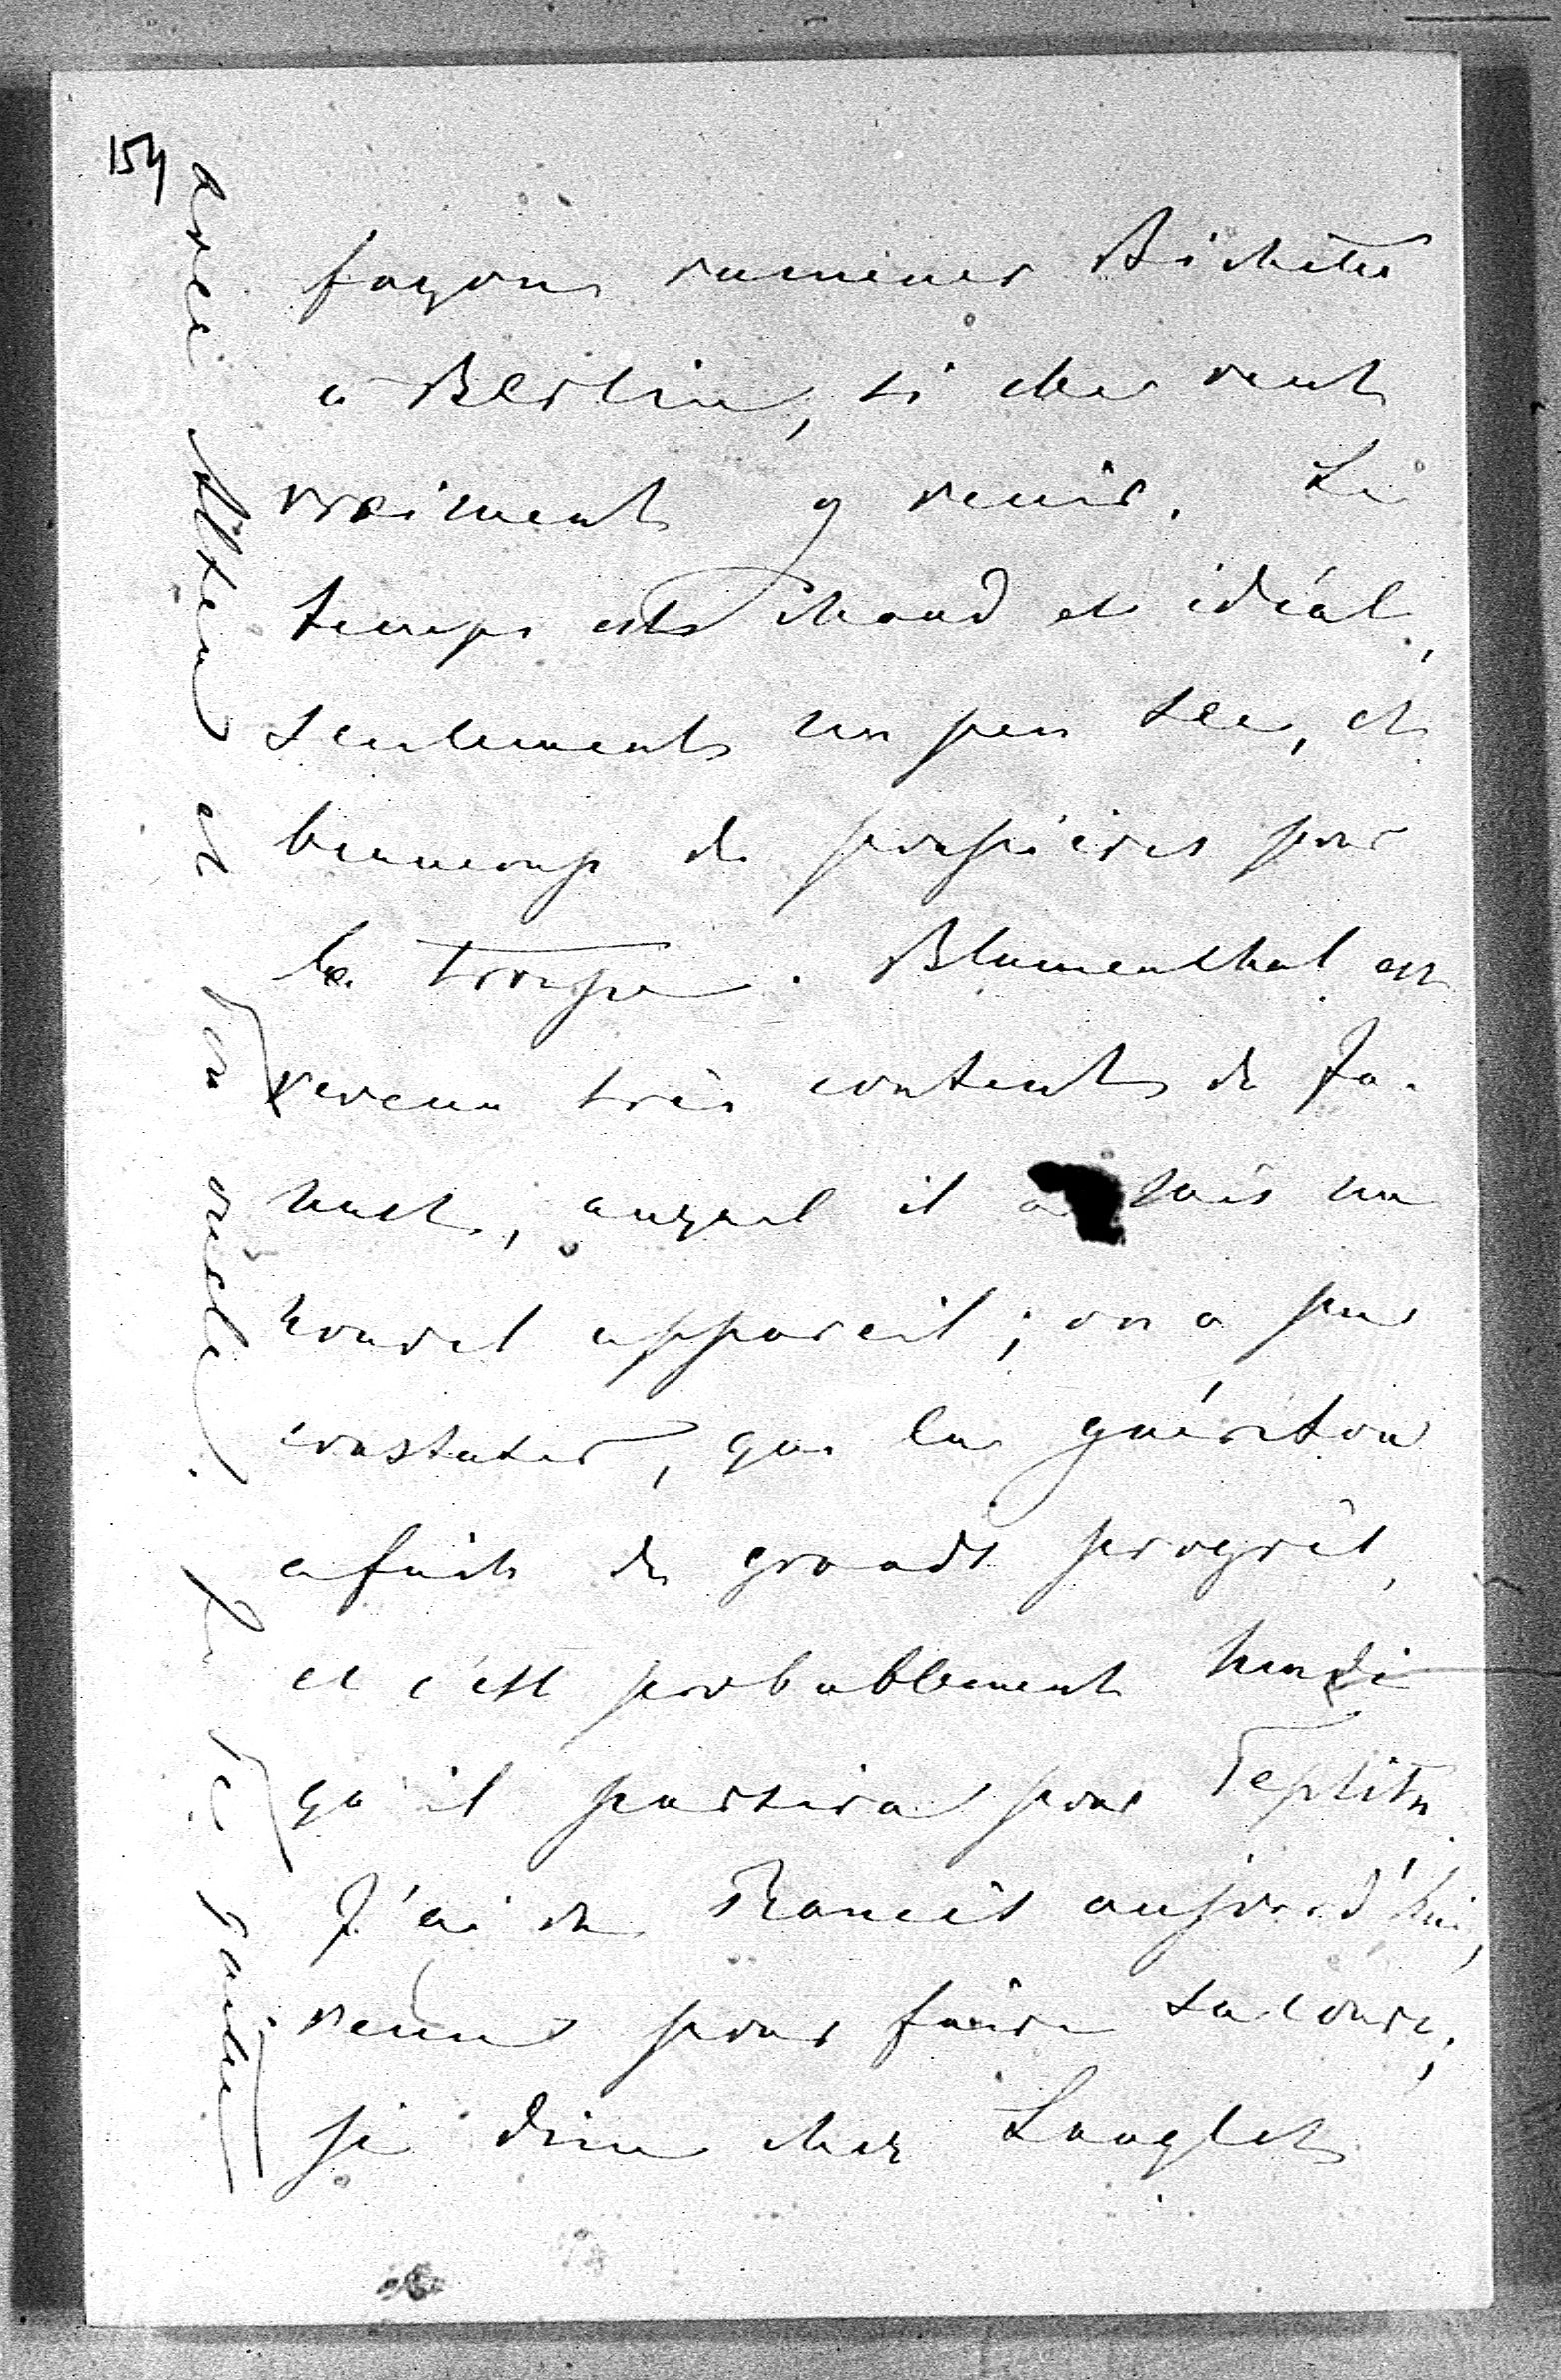 154
façons ramener Bichette
à Berlin, si elle veut
vraiment y venir. Le
temps est chaud et idéal,
seulement un peu sec, et
beaucoup de poussières pour
la troupe. Blumenthal est
revenu très content de Ja-
nusch, auquel il a mis un
nouvel appareil; on a pu
constater, que la guérison
a fait de grands progrès,
et c'est probablement lundi
qu'il partira pour Teplitz.
J'ai vu Francis aujourd'hui,
venu pour faire sa cour;
je dîne chez Langlet
avec Alten et son oncle. Je te